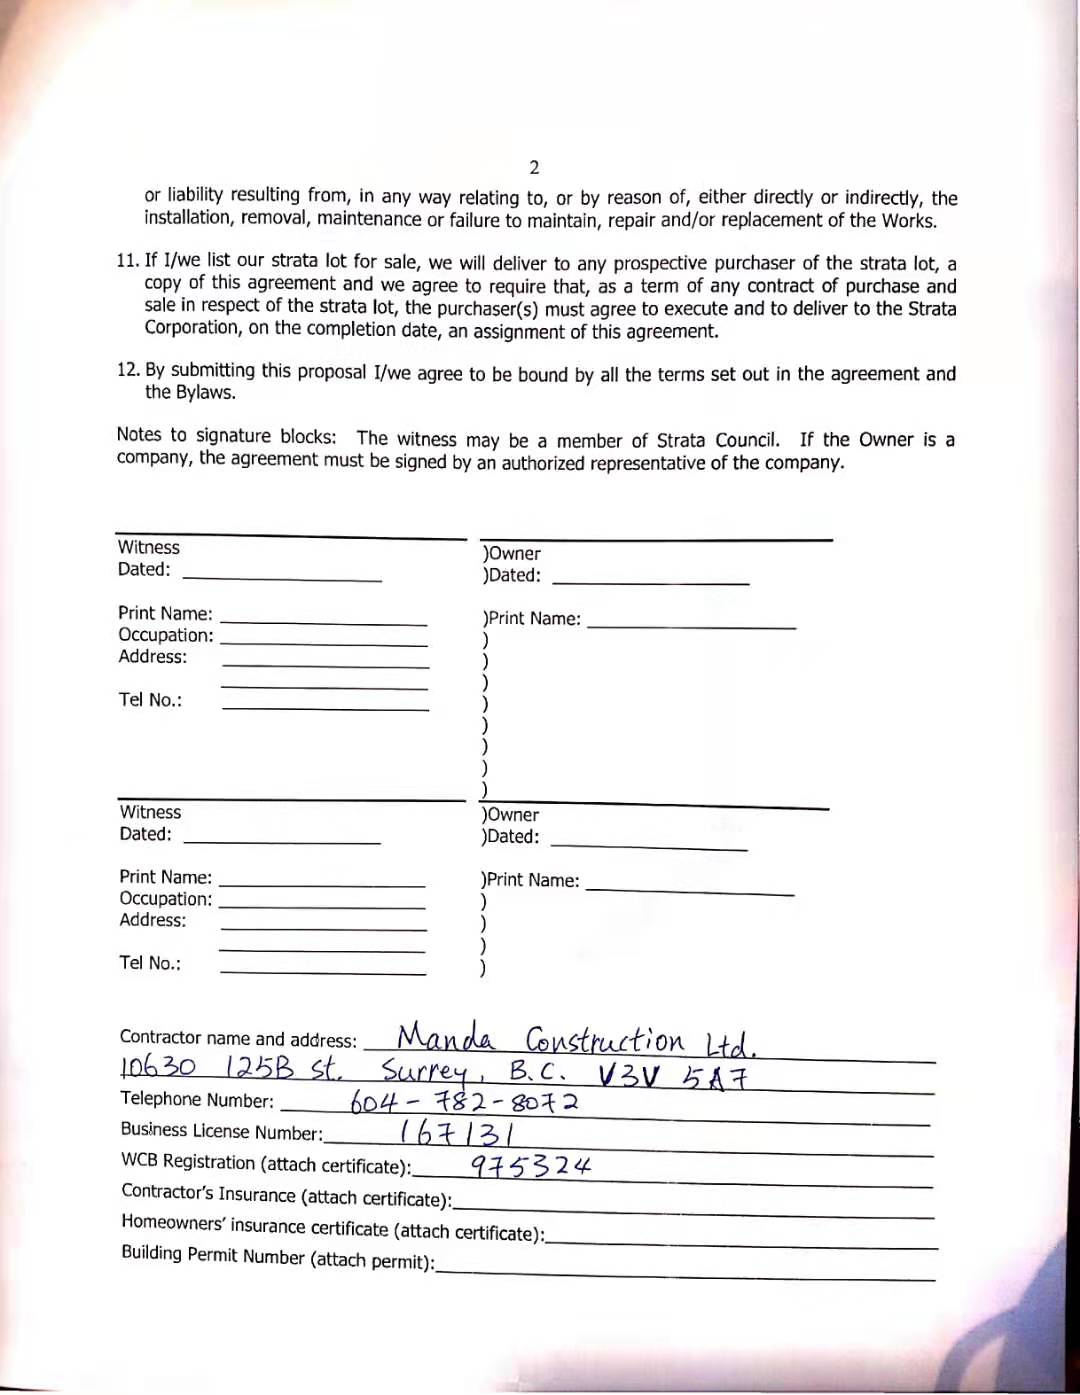 2
or liability resulting from, in any way relating to, or by reason of, either directly or indirectly, the
installation, removal, maintenance or failure to maintain, repair and/or replacement of the Works.
11. If I/we list our strata lot for sale, we will deliver to any prospective purchaser of the strata lot, a
copy of this agreement and we agree to require that, as a term of any contract of purchase and
sale in respect of the strata lot, the purchaser(s) must agree to execute and to deliver to the Strata
Corporation, on the completion date, an assignment of this agreement.
12. By submitting this proposal I/we agree to be bound by all the terms set out in the agreement and
the Bylaws.
Notes to signature blocks: The witness may be a member of Strata Council. If the Owner is a
company, the agreement must be signed by an authorized representative of the company.
Witness )Owner
Dated: )Dated:
Print Name: )Print Name:
Occupation: )
Address: )
)
Tel No.: )
)
)
)
)
Witness )Owner
Dated: )Dated:
Print Name: )Print Name:
Occupation: )
Address: )
)
Tel No.: )
Contractor name and address: Manda Construction Ltd.
10630 125B St. Surrey, B.C. V3V 5A7
Telephone Number: 604-782-8072
Business License Number: 167131
WCB Registration (attach certificate): 975324
Contractor's Insurance (attach certificate):
Homeowners' insurance certificate (attach certificate):
Building Permit Number (attach permit):